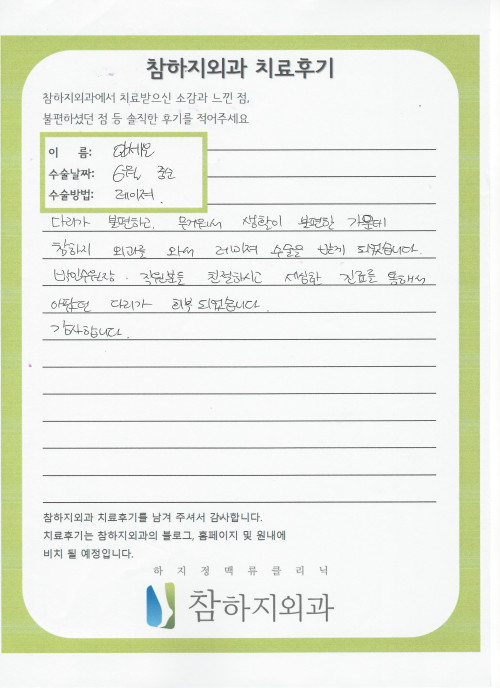 참하지외과 치료후기
참하지외과에서 치료받으신 소감과 느낀 점,
불편하셨던 점 등 솔직한 후기를 적어주세요
이 름:
수술날짜: 6월 중순
수술방법: 레이저.
다리가 불편하고, 무거워서 생활이 불편한 가운데
참하지 외과를 와서 레이져 수술을 받게 되었습니다.
박인수원장 · 직원분들 친절하시고 세심한 진료를 통해서
아팠던 다리가 회복 되었습니다.
감사합니다.
참하지외과 치료후기를 남겨 주셔서 감사합니다.
치료후기는 참하지외과의 블로그, 홈페이지 및 원내에
비치 될 예정입니다.
하지정맥류클리닉
참하지외과